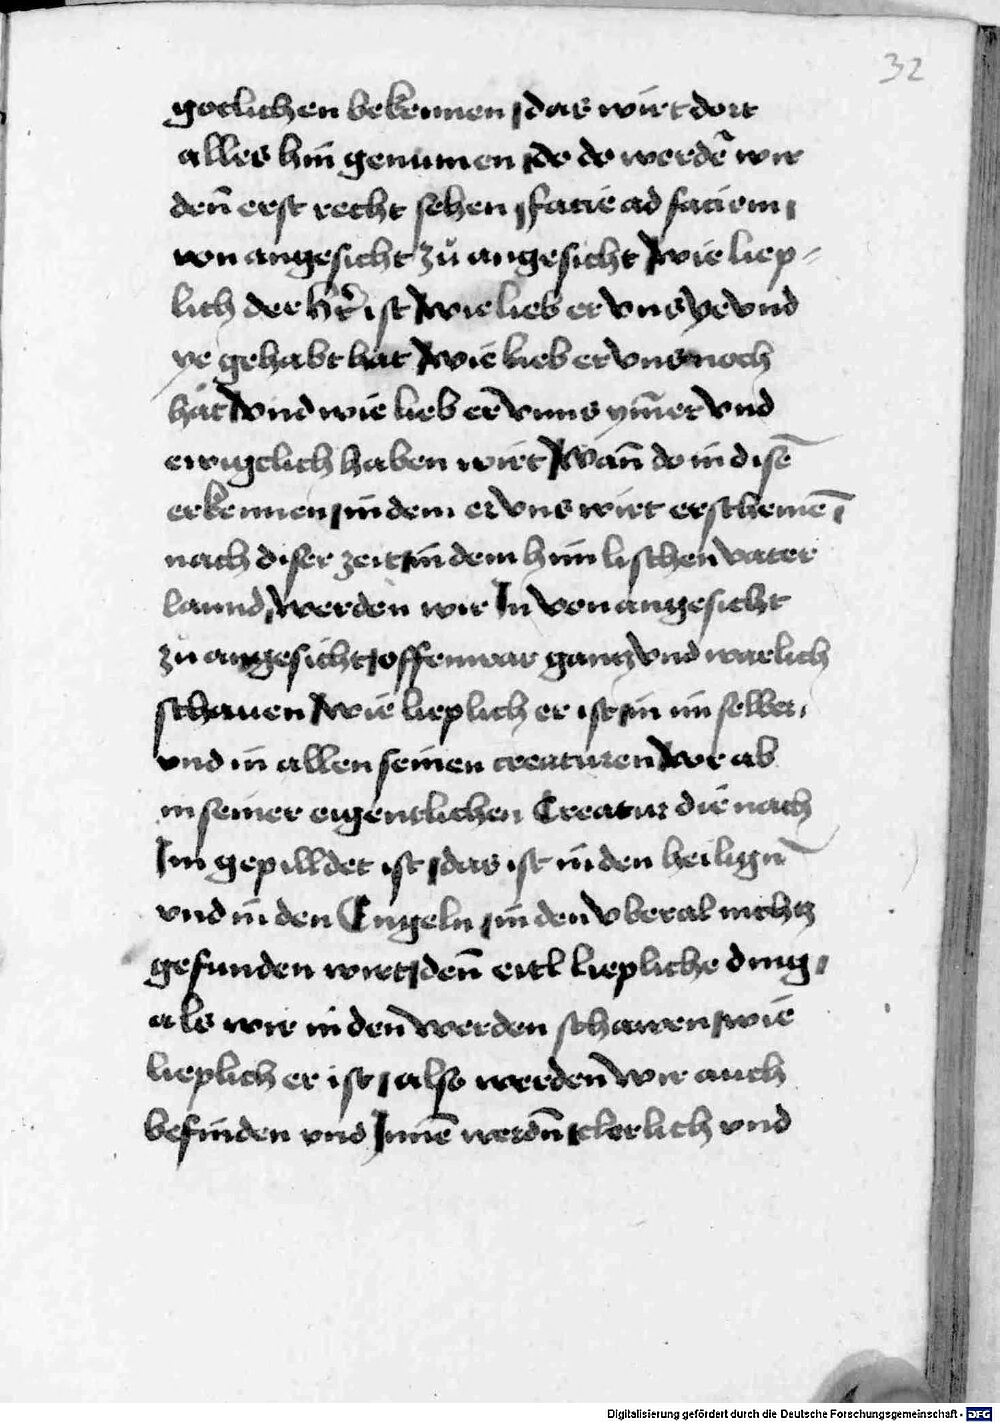 32
gotlichen bekennen / das wirt dort
alles hin genumen / do do werdē wir
den̄ erst recht sehen / facie ad faciem /
von angesicht zů angesicht / wie liep-
lich der hr̄ ist / wie lieb er vns ye vnd
ye gehabt hat / wie lieb er vns noch
hat / vnd wie lieb er vnns ym̄er vnd
ewigclich haben wirt / Wan̄ do in disē
erkennen / in dem er vns wirt erscheinē /
nach diser zeit / in dem himlischen vater
lannd / werden wir In von angesicht
zů angesicht / offenwar gantz vnd warlich
schauen / wie lieplich er ist / in im selber /
vnd in allen seinen creaturen / vor ab
in seiner eigentlichen Creatur die nach
Im gepilldet ist / das ist in den heilign̄
vnd in den Engeln / in den vberal nichtz
gefunden wirt / den̄ eitl liepliche ding /
als wir in den werden schawen / wie
lieplich er ist / also werden wir auch
befinden vnd Innē werdn̄ / clerlich vnd
Digitalisierung gefördert durch die Deutsche Forschungsgemeinschaft - DFG